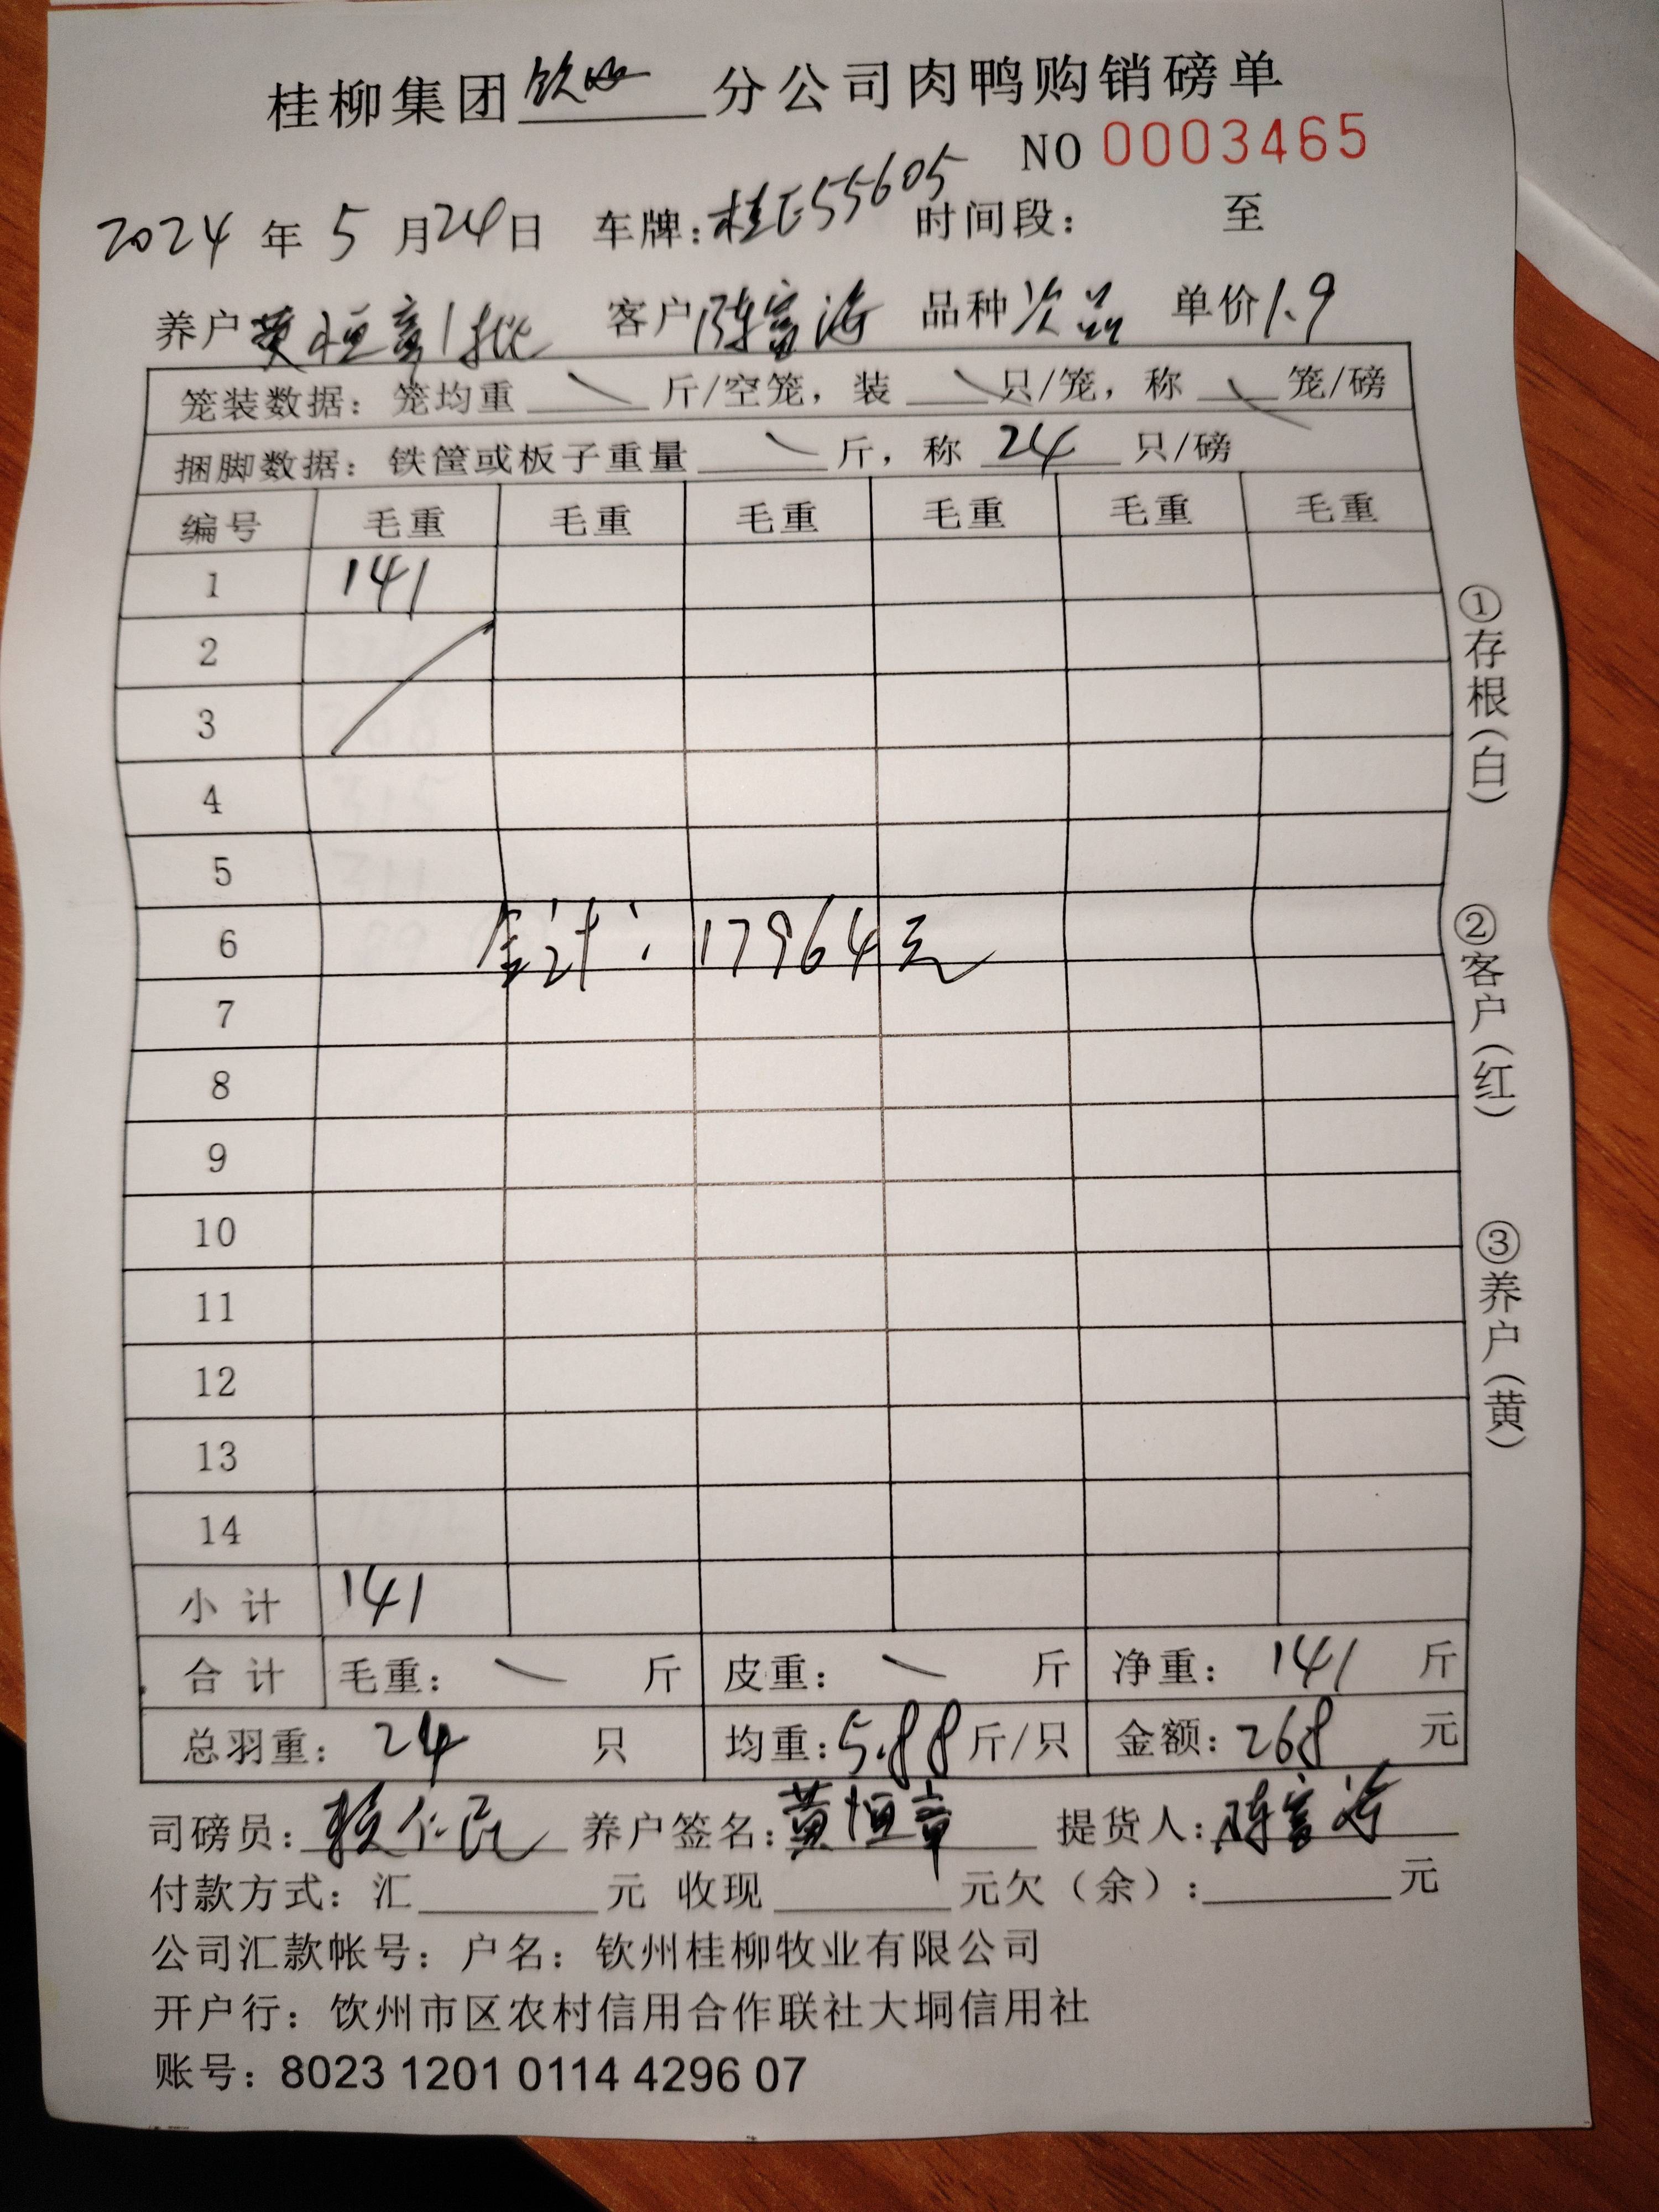 桂柳集团钦州分公司肉鸭购销磅单
NO 0003465
2024年5月24日 车牌:桂E55605 时间段: 至
养户黄恒章1批 客户陈富海 品种次品 单价1.9
笼装数据: 笼均重 斤/空笼, 装 只/笼, 称 笼/磅
捆脚数据: 铁筐或板子重量 斤, 称 24 只/磅
编号 毛重 毛重 毛重 毛重 毛重 毛重
1 141
2
3
4
5
6 合计: 17964元
7
8
9
10
11
12
13
14
小计 141
合计 毛重: 斤 皮重: 斤 净重: 141 斤
总羽重: 24 只 均重:5.88斤/只 金额:268 元
司磅员:赖仁民 养户签名:黄恒章 提货人:陈富海
付款方式: 汇 元 收现 元欠(余): 元
公司汇款帐号: 户名: 钦州桂柳牧业有限公司
开户行: 饮州市区农村信用合作联社大垌信用社
账号: 8023 1201 0114 4296 07
①存根(白)
②客户(红)
③养户(黄)